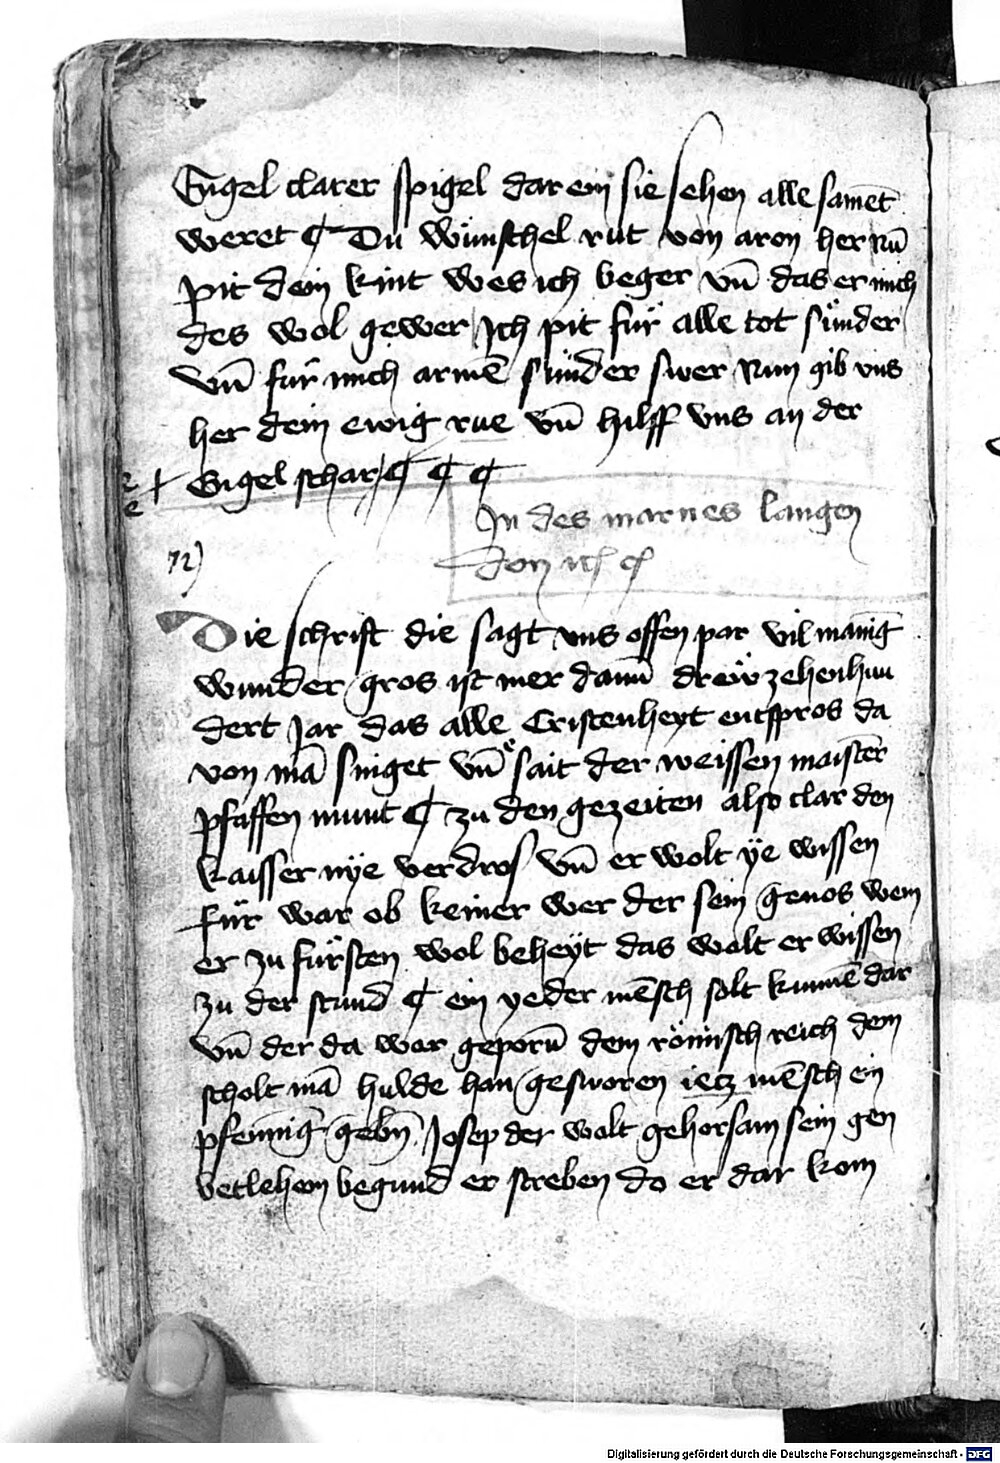 Engel clarer spigel dar ein sie sehen alle samēt
weret ¶ Du wünschel rut von aron her nū
pit dein kint wes ich beger vn̄ das er mich
des wol gewer Ich pit für alle tot sünder
vn̄ für mich armē sünder swer Nun gib vns
her dein ewig rue vn̄ hilff vns an der
Engel schar ¶ ¶ ¶
In des marnes langen
don
72)
Die schrift die sagt vns offen par vil manig
wunder gros ist mer dann dreẅzehenhun
dert Jar das alle Cristenheyt entspros da
von mā singet vn̄ sait der weissen maister
pfaffen munt ¶ zu den gezeiten also clar den
kaisser nye verdros vn̄ er wolt ÿe wissen
für war ob keiner wer der sein genos wem
er zu fürsten wol beheÿt das wolt er wissen
zu der stund ¶ ein yeder mēsch solt kumē dar
vn̄ der da war geporn̄ dem römisch reich dem
scholt mā hulde han gesworen ietz mēsch ein
pfennig gebn̄ Josep der wolt gehorsam sein gen
betlehem begund er streben do er dar kom
Digitalisierung gefördert durch die Deutsche Forschungsgemeinschaft - DFG